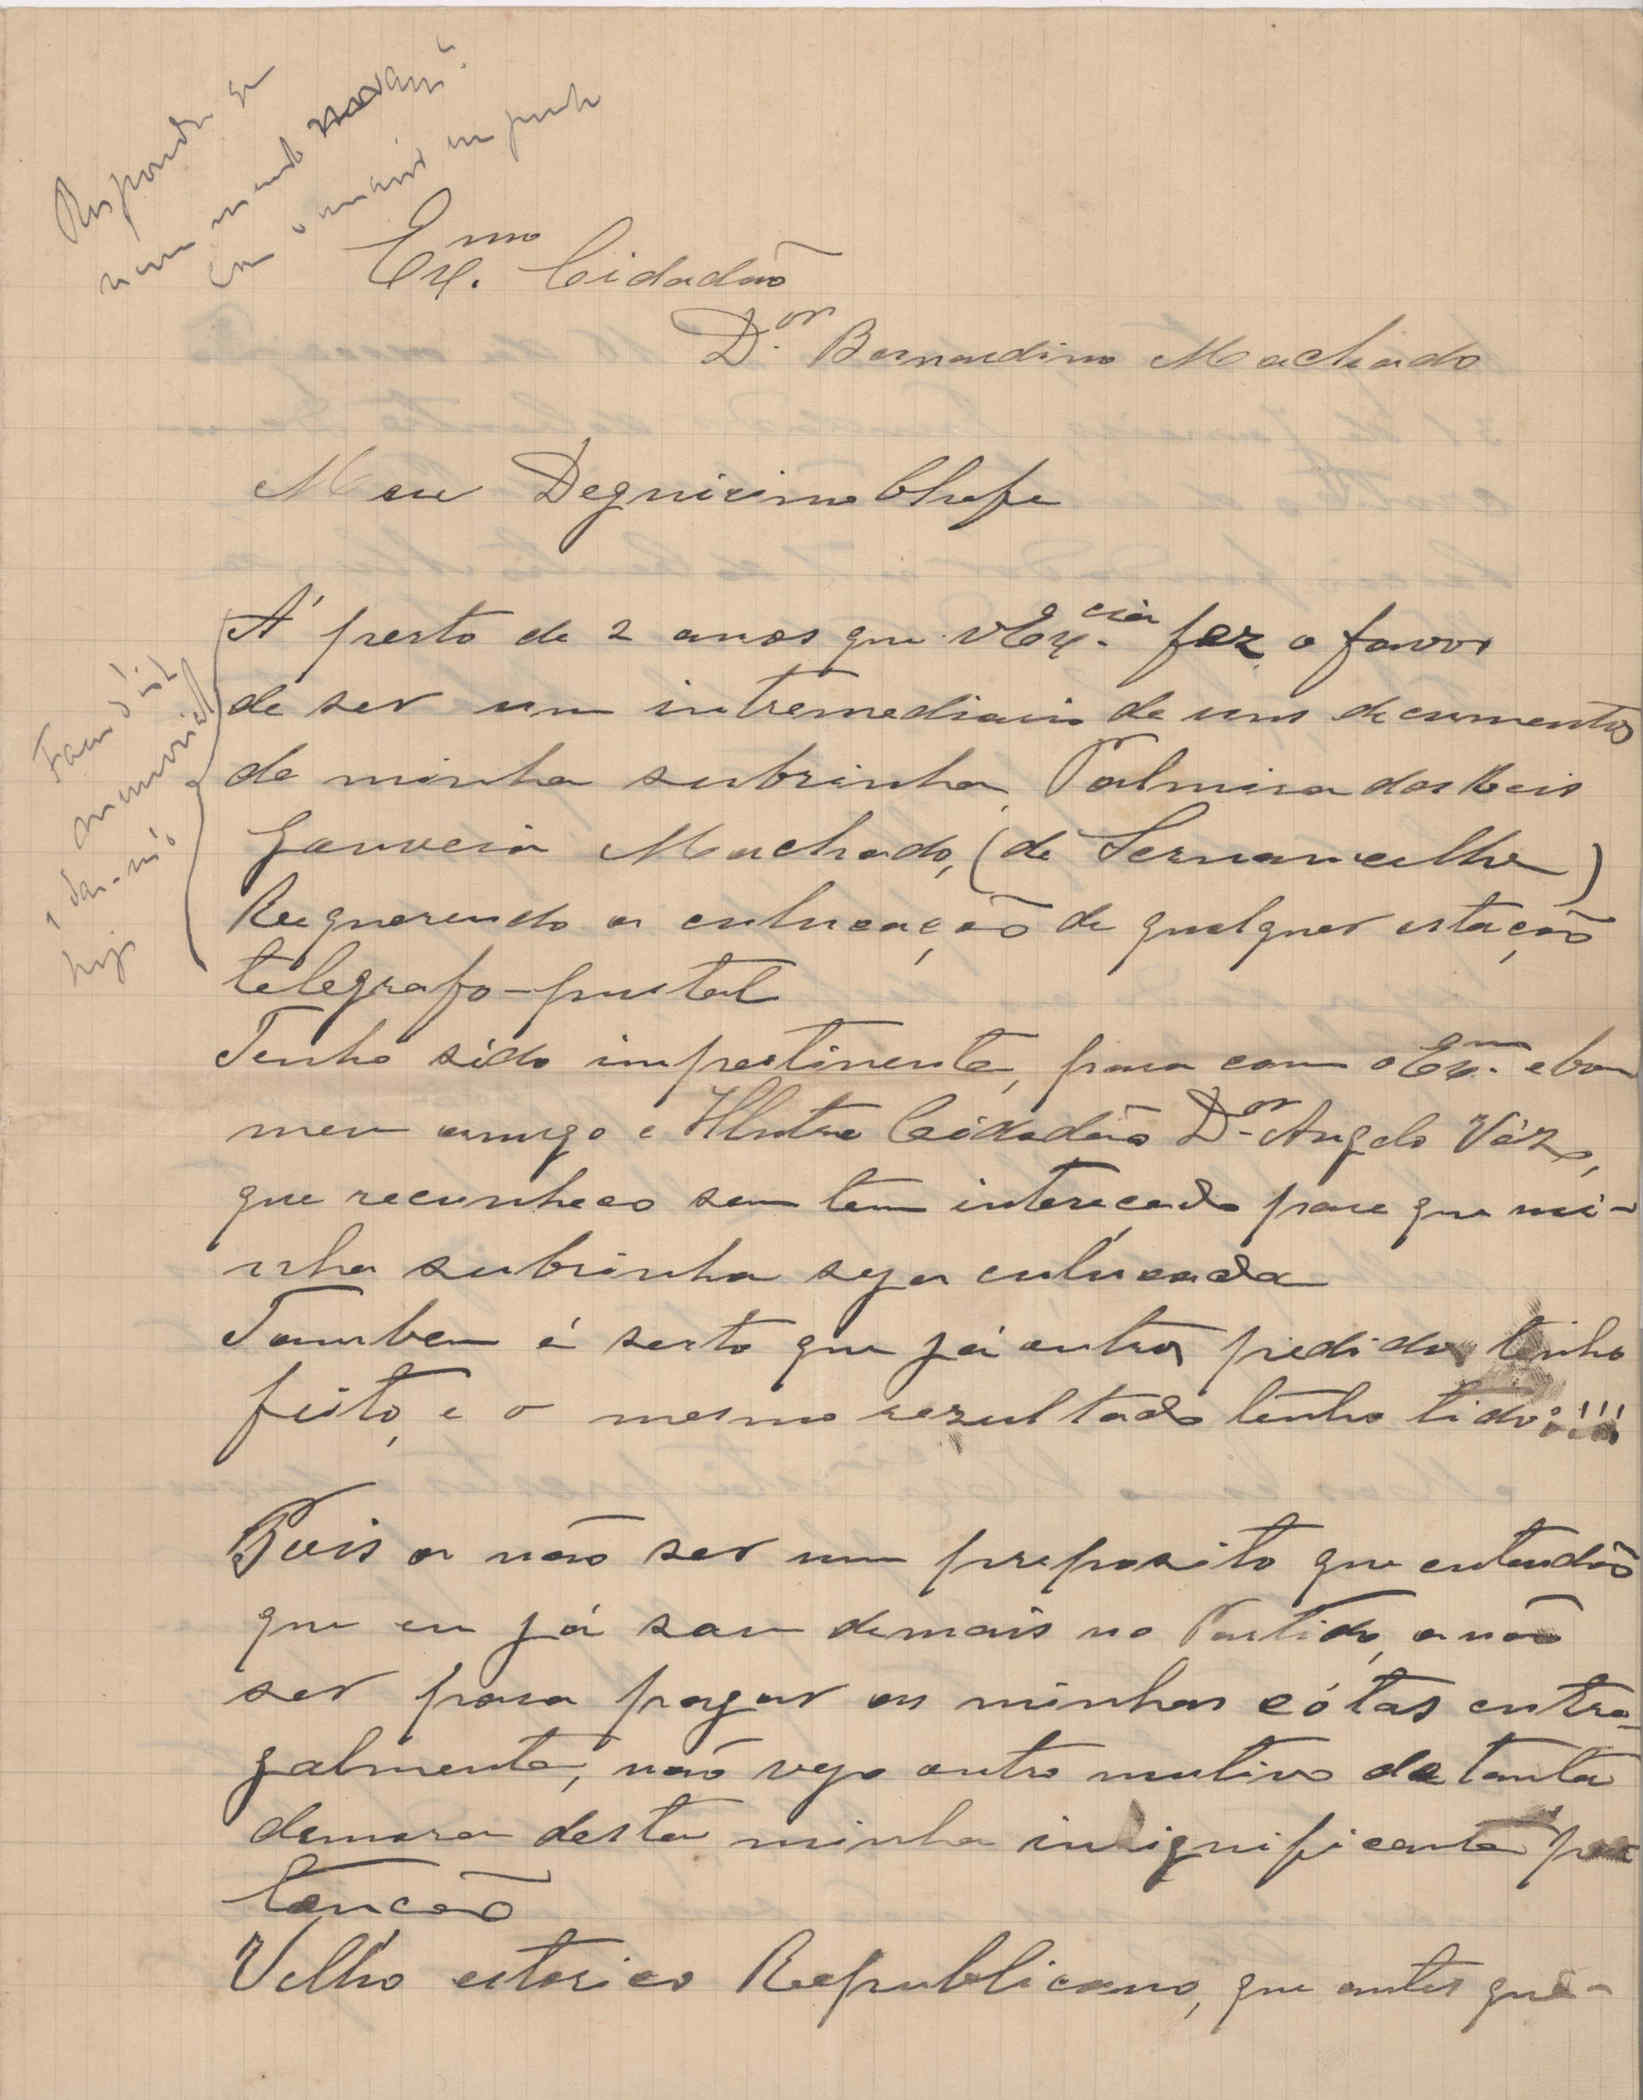 Responda que
num
com o maior
Ex.mo Cidadão
D.or Bernardino Machado
Meu Degnicimo Chefe
A' presto de 2 anos que vEx.cia fez o favor
de ser um intremediario de uns documentos
de minha subrinha Palmira dos Reis
Gouveia Machado, (de Sernancelhe)
Requerendo a culucação de qualquer estação
telegrafo-pustal
Tenho sido impertinente, para com o Ex.mo e bom
meu amigo e Illustre Cidadão D.or Angelo Váz,
que recunheco sem tem intereçado para que mi-
nha subrinha seja culucada
Tambem é serto que já outros pedidos tenho
feito, e o mesmo rezultado tenho tido!!!
Puis a não ser um preposito que entendão
que eu já sou demais no Partido, a não
ser para pagar as minhas cótas entre-
galmente, não vejo outro mutivo da tanta
demora desta minha insignificante pre
tenção
Velho estorico Republicano, que antes que-
Faça d'isto
memorial
e dar-m'o
hoje